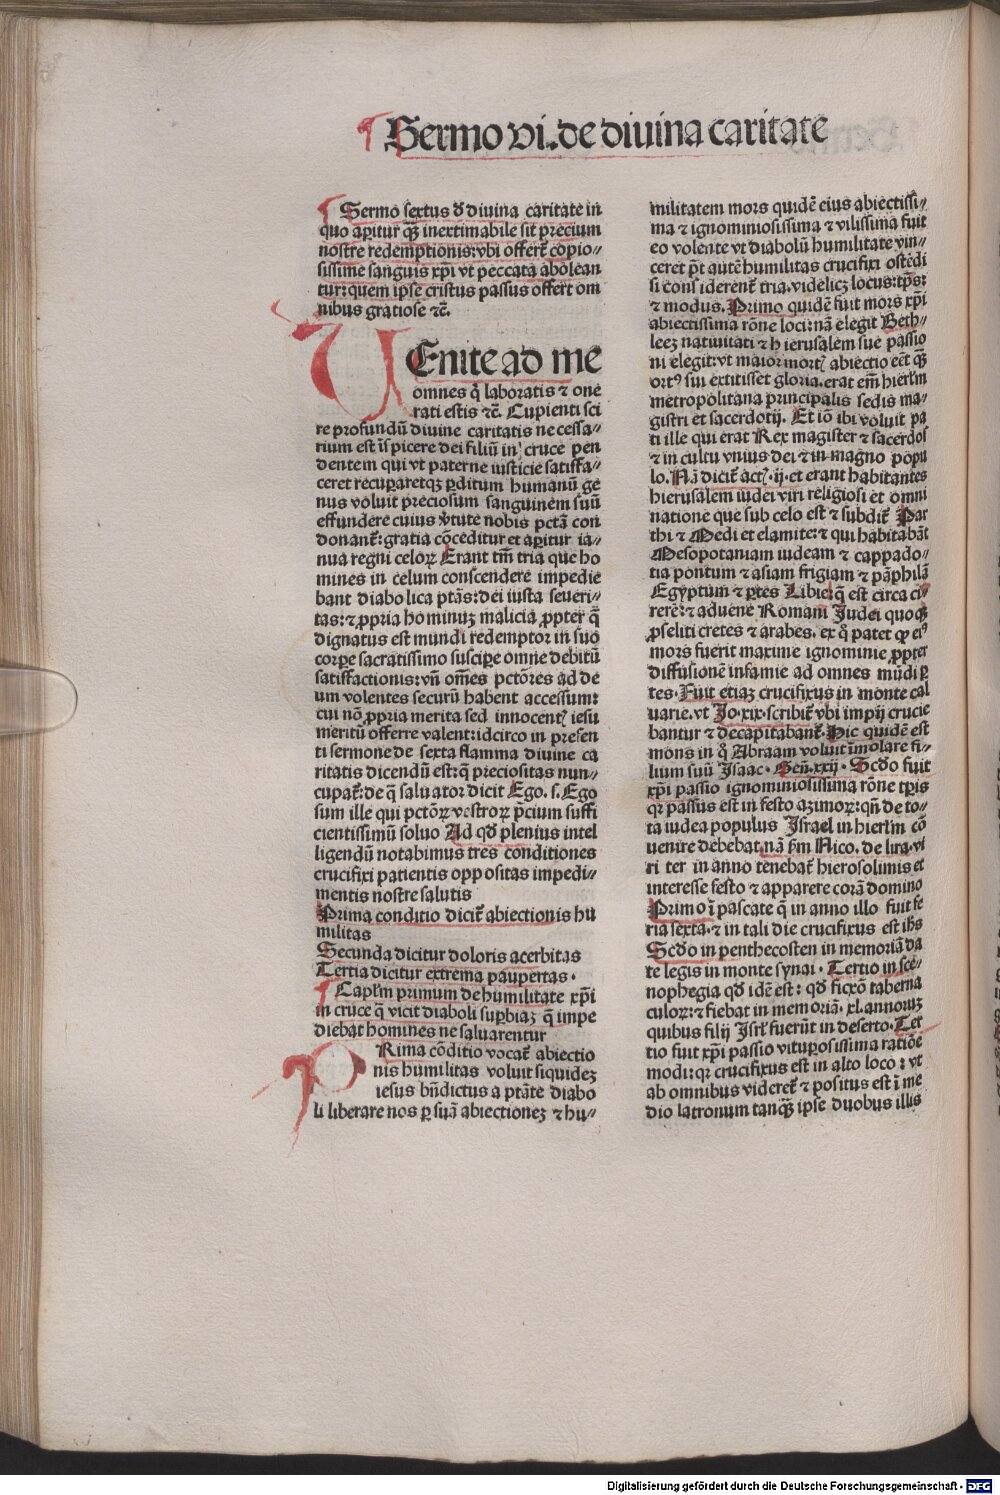 Sermo vi. de diuina caritate
Sermo sextus d̄ diuina caritate in
quo aꝑitur qꝫ inextimabile sit precium
nostre redemptionis: vbi offert᷑ copio⸗
sissime sanguis xp̄i vt peccata abolean
tur: quem ipse cristus passus offert om
nibus gratiose ⁊c̄.
VEnite ad me
omnes q̄ laboratis ⁊ one
rati estis ⁊c̄. Cupienti sci
re profundū diuine caritatis necessa⸗
rium est īspicere dei filiū in cruce pen
dentem qui vt paterne iusticie satisfa⸗
ceret recuꝑaretqꝫ ꝑditum humanū ge
nus voluit preciosum sanguinem suū
effundere cuius v̓tute nobis pctā con
donant᷑: gratia cōceditur et aꝑitur ia⸗
nua regni celoꝝ Erant tn̄ tria que ho
mines in celum conscendere impedie
bant diabolica ptās: dei iusta seueri⸗
tas: ⁊ ꝓpria hominuꝫ malicia ꝓpter q̄
dignatus est mundi redemptor in suo
corꝑe sacratissimo susciꝑe omne debitū
satisfactionis: vn̄ om̄es pctōres ad de
um volentes securū habent accessum:
cui nō ꝓpria merita sed innocentꝭ iesu
meritū offerre valent: idcirco in presen
ti sermone de sexta flamma diuine ca
ritatis dicendū est: q̄ preciositas nun⸗
cupat᷑: de q̄ saluator dicit Ego. s. Ego
sum ille qui pctōꝝ vestroꝝ p̄cium suffi
cientissimū soluo Ad qd̄ plenius intel
ligendū notabimus tres conditiones
crucifixi patientis oppositas impedi⸗
mentis nostre salutis
Prima conditio dicit᷑ abiectionis hu
militas
Secunda dicitur doloris acerbitas
Tertia dicitur extrema paupertas.
Capl̄m primum de humilitate xp̄i
in cruce q̄ vicit diaboli suꝑbiaꝫ q̄ impe
diebat homines ne saluarentur
PRima cōditio vocat᷑ abiectio
nis humilitas voluit siquideꝫ
iesus bn̄dictus a ptāte diabo
li liberare nos ꝑ suā abiectioneꝫ ⁊ hu⸗
militatem mors quidē eius abiectissi⸗
ma ⁊ ignominiosissima ⁊ vilissima fuit
eo volente vt diabolū humilitate vin⸗
ceret p̄t autē humilitas crucifixi ostēdi
si considerent᷑ tria. videlicꝫ locus: tp̄s:
⁊ modus. Primo quidē fuit mors xp̄i
abiectissima rōne loci: nā elegit Beth⸗
leeꝫ natiuitati ⁊ hierusalem sue passio
ni elegit: vt maior mortꝭ abiectio eēt qꝫ
ortꝰ sui extitisset gloria. erat em̄ hierl̄m
metropolitana principalis sedis ma⸗
gistri et sacerdotij. Et iō ibi voluit pa
ti ille qui erat Rex magister ⁊ sacerdos
⁊ in cultu vnius dei ⁊ in magno popu
lo. Nā dicit᷑ actꝭ. ij. et erant habitantes
hierusalem iudei viri religiosi et omni
natione que sub celo est ⁊ subdit᷑ Par
thi ⁊ Medi et elamite: ⁊ qui habitabāt
Mesopotaniam iudeam ⁊ cappado⸗
tia pontum ⁊ asiam frigiam ⁊ pāphilā
Egyptum ⁊ ꝑtes Libie: q̄ est circa ci⸗
renē: ⁊ aduene Romani Judei quoqꝫ
ꝓseliti cretes ⁊ arabes. ex q̊ patet ꝙ eiꝰ
mors fuerit maxime ignominie ꝓpter
diffusionē infamie ad omnes mūdi ꝑ
tes. Fuit etiaꝫ crucifixus in monte cal
uarie. vt Jo. xix. scribit᷑ vbi impij crucie
bantur ⁊ decapitabant᷑. Hic quidē est
mons in q̊ Abraam voluit īmolare fi⸗
lium suū Isaac. Gen̄. xxij. Scd̄o fuit
xp̄i passio ignominiosissima rōne tꝑis
qꝛ passus est in festo azimoꝝ: qn̄ de to⸗
ta iudea populus Israel in hierl̄m cō
uenire debebat. nā ẜm Nico. de lira. vi
ri ter in anno tenebāt᷑ hierosolimis et
interesse festo ⁊ apparere corā domino
Primo ī pascate q̄ in anno illo fuit fe
ria sexta. ⁊ in tali die crucifixus est ihs̄
Scd̄o in penthecosten in memoriā da
te legis in monte synai. Tertio in sce⸗
nophegia qd̄ idē est: qd̄ fictiō taberna
culoꝝ: ⁊ fiebat in memoriā. xl. annoruꝫ
quibus filij Isrl̄ fuerūt in deserto. Ter
tio fuit xp̄i passio vituꝑosissima ratiōe
modi: qꝛ crucifixus est in alto loco: vt
ab omnibus videret᷑ ⁊ positus est ī me
dio latronum tanqꝫ̄ ipse duobus illis
Digitalisierung gefördert durch die Deutsche Forschungsgemeinschaft - DFG